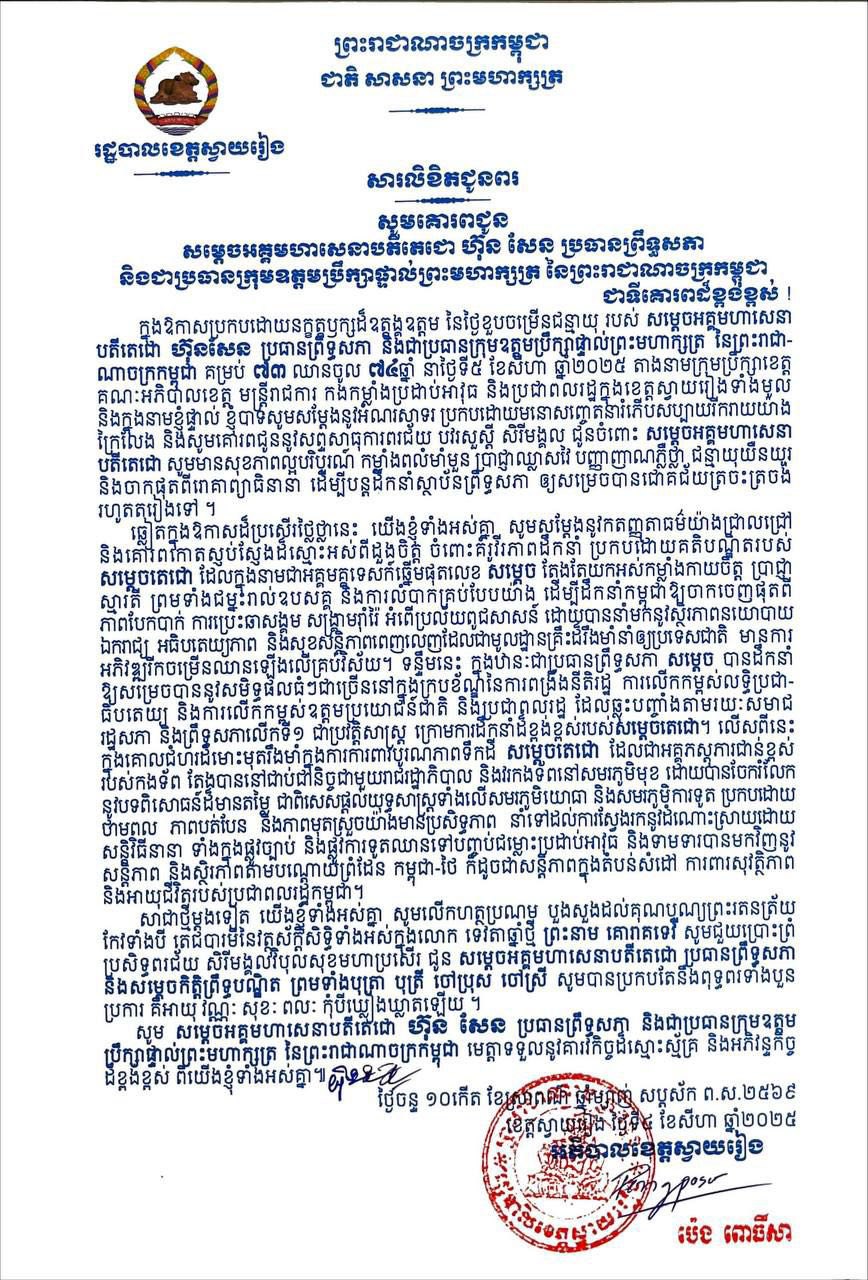 ព្រះរាជាណាចក្រកម្ពុជា
ជាតិ សាសនា ព្រះមហាក្សត្រ
រដ្ឋបាលខេត្តស្វាយរៀង
សារលិខិតជូនពរ
សូមគោរពជូន
សម្តេចអគ្គមហាសេនាបតីតេជោ ហ៊ុន សែន ប្រធានព្រឹទ្ធសភា
និងជាប្រធានក្រុមឧត្តមប្រឹក្សាផ្ទាល់ព្រះមហាក្សត្រ នៃព្រះរាជាណាចក្រកម្ពុជា
ជាទីគោរពដ៏ខ្ពង់ខ្ពស់ !
ក្នុងឱកាសប្រកបដោយនក្ខត្តឫក្សដ៏ឧត្តុង្គឧត្តម នៃថ្ងៃខួបចម្រើនជន្មាយុ របស់ សម្តេចអគ្គមហាសេនា
បតីតេជោ ហ៊ុនសែន ប្រធានព្រឹទ្ធសភា និងជាប្រធានក្រុមឧត្តមប្រឹក្សាផ្ទាល់ព្រះមហាក្សត្រ នៃព្រះរាជា-
ណាចក្រកម្ពុជា គម្រប់ ៧៣ ឈានចូល ៧៤ឆ្នាំ នាថ្ងៃទី៥ ខែសីហា ឆ្នាំ២០២៥ តាងនាមក្រុមប្រឹក្សាខេត្ត
គណៈអភិបាលខេត្ត មន្ត្រីរាជការ កងកម្លាំងប្រដាប់អាវុធ និងប្រជាពលរដ្ឋក្នុងខេត្តស្វាយរៀងទាំងមូល
និងក្នុងនាមខ្ញុំផ្ទាល់ ខ្ញុំបាទសូមសម្តែងនូវអំណរសាទរ ប្រកបដោយមនោសញ្ចេតនារំភើបសប្បាយរីករាយយ៉ាង
ក្រៃលែង និងសូមគោរពជូននូវសព្ទសាធុការពរជ័យ បវរសួស្តី សិរីមង្គល ជូនចំពោះ សម្តេចអគ្គមហាសេនា
បតីតេជោ សូមមានសុខភាពល្អបរិបូរណ៍ កម្លាំងពលំមាំមួន ប្រាជ្ញាឈ្លាសវៃ បញ្ញាញាណភ្លឺថ្លា ជន្មាយុយឺនយូរ
និងចាកផុតពីរោគាព្យាធិនានា ដើម្បីបន្តដឹកនាំស្ថាប័នព្រឹទ្ធសភា ឲ្យសម្រេចបានជោគជ័យត្រចះត្រចង់
រហូតតរៀងទៅ ។
ឆ្លៀតក្នុងឱកាសដ៏ប្រសើរថ្លៃថ្លានេះ យើងខ្ញុំទាំងអស់គ្នា សូមសម្តែងនូវកតញ្ញូតាធម៌យ៉ាងជ្រាលជ្រៅ
និងគោរពកោតស្ញប់ស្ញែងដ៏ស្មោះអស់ពីដួងចិត្ត ចំពោះគំរូវីរភាពដឹកនាំ ប្រកបដោយគតិបណ្ឌិតរបស់
សម្តេចតេជោ ដែលក្នុងនាមជាអគ្គមគ្គុទេសក៍ឆ្នើមផុតលេខ សម្តេច តែងតែយកអស់កម្លាំងកាយចិត្ត ប្រាជ្ញា
ស្មារតី ព្រមទាំងជម្នះរាល់ឧបសគ្គ និងការលំបាកគ្រប់បែបយ៉ាង ដើម្បីដឹកនាំកម្ពុជាឱ្យចាកចេញផុតពី
ភាពបែកបាក់ ការប្រេះឆាសង្គម សង្គ្រាមរ៉ាំរ៉ៃ អំពើប្រល័យពូជសាសន៍ ដោយបាននាំមកនូវស្ថិរភាពនយោបាយ
ឯករាជ្យ អធិបតេយ្យភាព និងសុខសន្តិភាពពេញលេញដែលជាមូលដ្ឋានគ្រឹះដ៏រឹងមាំនាំឲ្យប្រទេសជាតិ មានការ
អភិវឌ្ឍរីកចម្រើនឈានឡើងលើគ្រប់វិស័យ។ ទន្ទឹមនេះ ក្នុងឋានៈជាប្រធានព្រឹទ្ធសភា សម្តេច បានដឹកនាំ
ឱ្យសម្រេចបាននូវសមិទ្ធផលធំៗជាច្រើននៅក្នុងក្របខ័ណ្ឌនៃការពង្រឹងនីតិរដ្ឋ ការលើកកម្ពស់លទ្ធិប្រជា-
ធិបតេយ្យ និងការលើកកម្ពស់ឧត្តមប្រយោជន៍ជាតិ និងប្រជាពលរដ្ឋ ដែលឆ្លុះបញ្ចាំងតាមរយៈសមាជ
រដ្ឋសភា និងព្រឹទ្ធសភាលើកទី១ ជាប្រវត្តិសាស្ត្រ ក្រោមការដឹកនាំដ៏ខ្ពង់ខ្ពស់របស់សម្តេចតេជោ។ លើសពីនេះ
ក្នុងគោលជំហរដ៏មោះមុតរឹងមាំក្នុងការការពារបូរណភាពទឹកដី សម្តេចតេជោ ដែលជាអគ្គតស្តុការជាន់ខ្ពស់
របស់កងទ័ព តែងបាននៅជាប់ជានិច្ចជាមួយរាជរដ្ឋាភិបាល និងវរកងទ័ពនៅសមរភូមិមុខ ដោយបានចែករំលែក
នូវបទពិសោធន៍ដ៏មានតម្លៃ ជាពិសេសផ្តល់យុទ្ធសាស្ត្រទាំងលើសមរភូមិយោធា និងសមរភូមិការទូត ប្រកបដោយ
ថាមពល ភាពបត់បែន និងភាពមុតស្រួចយ៉ាងមានប្រសិទ្ធភាព នាំទៅដល់ការស្វែងរកនូវដំណោះស្រាយដោយ
សន្តិវិធីនានា ទាំងក្នុងផ្លូវច្បាប់ និងផ្លូវការទូតឈានទៅបញ្ចប់ជម្លោះប្រដាប់អាវុធ និងទាមទារបានមកវិញនូវ
សន្តិភាព និងស្ថិរភាពតាមបណ្តោយព្រំដែន កម្ពុជា-ថៃ ក៏ដូចជាសន្តិភាពក្នុងតំបន់សំដៅ ការពារសុវត្ថិភាព
និងអាយុជីវិតរបស់ប្រជាពលរដ្ឋកម្ពុជា។
សាជាថ្មីម្តងទៀត យើងខ្ញុំទាំងអស់គ្នា សូមលើកហត្ថប្រណម្យ បួងសួងដល់គុណបុណ្យព្រះរតនត្រ័យ
កែវទាំងបី តេជបារមីនៃវត្ថុស័ក្តិសិទ្ធិទាំងអស់ក្នុងលោក ទេវតាឆ្នាំថ្មី ព្រះនាម គោរាគទេវី សូមជួយប្រោះព្រំ
ប្រសិទ្ធពរជ័យ សិរីមង្គលវិបុលសុខមហាប្រសើរ ជូន សម្តេចអគ្គមហាសេនាបតីតេជោ ប្រធានព្រឹទ្ធសភា
និងសម្តេចកិត្តិព្រឹទ្ធបណ្ឌិត ព្រមទាំងបុត្រា បុត្រី ចៅប្រុស ចៅស្រី សូមបានប្រកបតែនឹងពុទ្ធពរទាំងបួន
ប្រការ គឺអាយុ វណ្ណៈ សុខៈ ពលៈ កុំបីឃ្លៀងឃ្លាតឡើយ ។
សូម សម្តេចអគ្គមហាសេនាបតីតេជោ ហ៊ុន សែន ប្រធានព្រឹទ្ធសភា និងជាប្រធានក្រុមឧត្តម
ប្រឹក្សាផ្ទាល់ព្រះមហាក្សត្រ នៃព្រះរាជាណាចក្រកម្ពុជា មេត្តាទទួលនូវគារវកិច្ចដ៏ស្មោះស្ម័គ្រ និងអភិវន្ទកិច្ច
ដ៏ខ្ពង់ខ្ពស់ ពីយើងខ្ញុំទាំងអស់គ្នា៕
ថ្ងៃចន្ទ ១០កើត ខែស្រាពណ៍ ឆ្នាំម្សាញ់ សប្តស័ក ព.ស.២៥៦៩
ខេត្តស្វាយរៀង ថ្ងៃទី៤ ខែសីហា ឆ្នាំ២០២៥
អភិបាលខេត្តស្វាយរៀង
ប៉េង ពោធិ៍សា